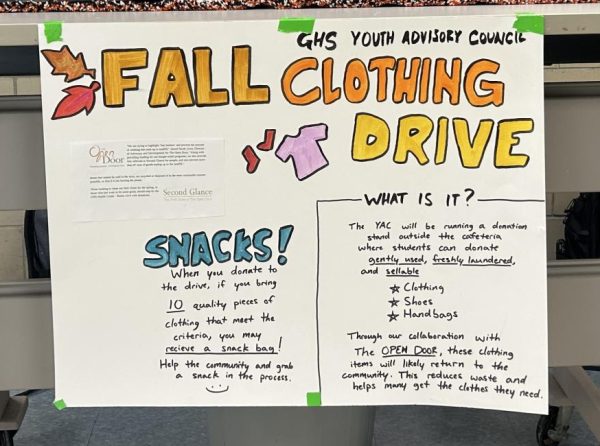 GHS YOUTH ADVISORY COUNCIL
FALL CLOTHING
DRIVE
The
Open
Door
Second Glance
SNACKS!
When you donate to
the drive, if you bring
10 quality pieces of
clothing that meet the
criteria, you may
recieve a snack bag!
Help the community and grab
a snack in the process.
WHAT IS IT?
The YAC will be running a donation
stand outside the cafeteria
where students can donate
gently used, freshly laundered,
and sellable
Clothing
Shoes
Handbags
Through our collaboration with
The OPEN DOOR, these clothing
items will likely return to the
community. This reduces waste and
helps many get the clothes they need.